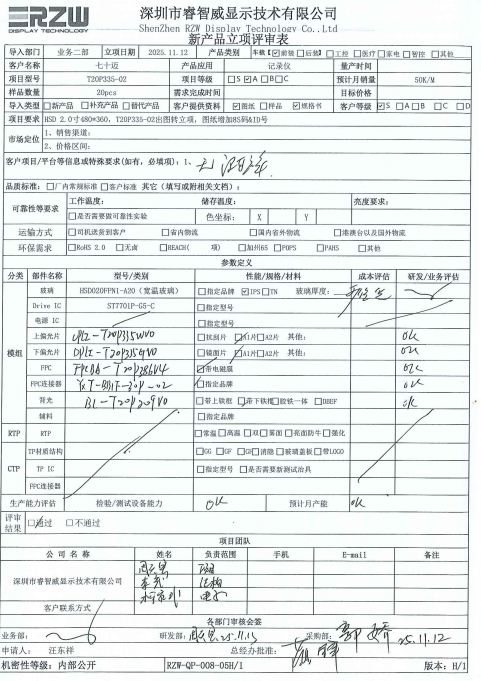 RZW
DISPLAY TECHNOLOGY
深圳市睿智威显示技术有限公司
ShenZhen RZW Display Technology Co.,Ltd
新产品立项评审表
导入部门 业务二部 立项日期 2025.11.12 产品应用 车载(☑前装 □后装) □工控 □医疗 □家电 □智控 □其他
客户名称 七十迈 产品应用 记录仪 量产时间
项目型号 T20P335-02 项目等级 □S ☑A □B □C 预计月销量 50K/M
样品数量 20pcs 需求完成时间 目标价格
导入类型 □新产品 □补充产品 □替代产品 客户提供资料 ☑图纸 □样品 ☑规格书 客户等级 ☑S □A □B □C □D
项目要求 HSD 2.0寸480*360, T20P335-02出图转立项, 图纸增加8S码&ID号
市场定位 1、销售渠道:
2、价格区间:
客户项目/平台等信息或特殊要求(如有,必填项): 1、无
品质标准: □厂内常规标准 □客户标准 其它(填写或附相关文档):
可靠性等要求 工作温度: 储存温度: 亮度要求:
□是否需要做可靠性实验 色坐标: X Y
运输方式 □司机送货到客户 □省内物流 □国内省外物流 □港澳台以及国外物流
环保需求 □RoHS 2.0 □无卤 □REACH( 项) □加州65 □POPS □PAHS □其他
参数定义
分类 部件名称 型号/类别 性能/规格/材料 成本评估 研发/业务评估
模组 玻璃 HSD020FPN1-A20(宽温玻璃) □指定品牌 ☑IPS □TN 玻璃厚度:
Drive IC ST7701P-G5-C □指定型号
电源 IC □指定型号
上偏光片 □抗刮片 □A1片 □A2片 其他: OK
下偏光片 □镜面片 □A1片 □A2片 其他: OK
FPC □带电磁膜 OK
FPC连接器 □指定品牌 OK
背光 □带上铁框 □带下铁框 □胶铁一体 □DBEF OK
辅料 □指定品牌
RTP RTP □常温 □高温 □双 □雾面 □亮面防牛 □强化
CTP TP材质结构 □GG □GF □GP □消隐 □玻璃盖板 □带LOGO
TP IC □指定型号 □是否需要新测试治具
FPC连接器
生产能力评估 检验/测试设备能力 OK 预计月产能 OK
评审结果 □通过 □不通过
项目团队
公司名称 姓名 负责范围 手机 E-mail 备注
深圳市睿智威显示技术有限公司
客户联系方式
各部门审核会签
业务部: 研发部: 25.11.13 采购部: 25.11.12
申请人: 汪东祥 总经办批准:
机密性等级: 内部公开 RZW-QP-008-05H/1 版本: H/1